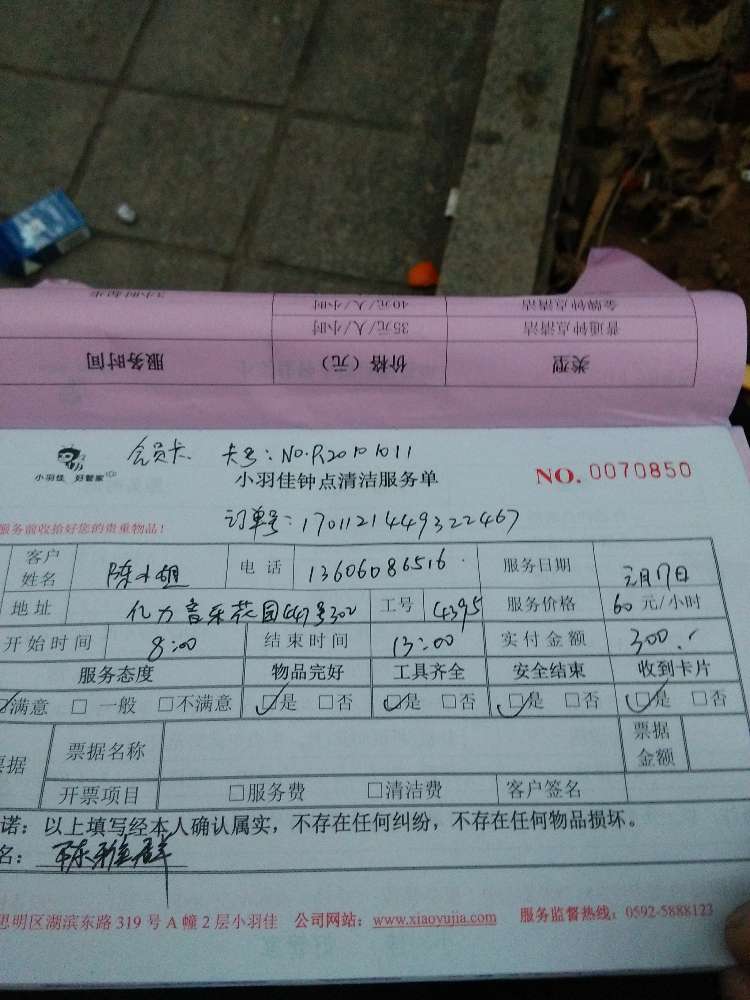 3小时起步 40元/人/小时 金牌钟点清洁
35元/人/小时 普通钟点清洁
服务时间 价格（元） 类型
会员卡 卡号：NO.R20101011
小羽佳 好管家 小羽佳钟点清洁服务单 NO. 0070850
服务前收拾好您的贵重物品！ 订单号：1701121449322467
客户姓名 陈小姐 电话 13606086516 服务日期 元月17日
地址 亿力音乐花园447号302 工号 4395 服务价格 60元/小时
开始时间 8:00 结束时间 13:00 实付金额 300.
服务态度 物品完好 工具齐全 安全结束 收到卡片
满意 □一般 □不满意 □是 □否 □是 □否 □是 □否 □是 □否
票据 票据名称 票据金额
开票项目 □服务费 □清洁费 客户签名
诺：以上填写经本人确认属实，不存在任何纠纷，不存在任何物品损坏。
名：陈雅群
思明区湖滨东路319号A幢2层小羽佳 公司网站：www.xiaoyujia.com 服务监督热线：0592-5888123